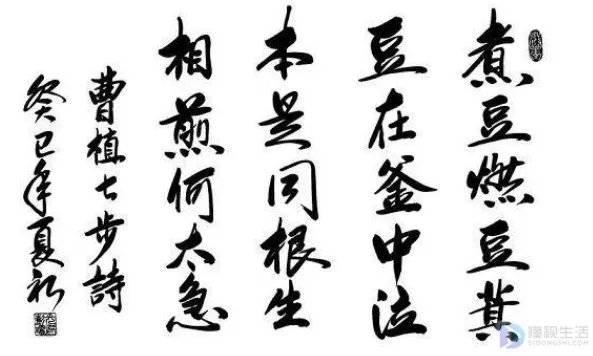 煮豆燃豆萁
豆在釜中泣
本是同根生
相煎何太急
曹植七步詩
癸巳年夏初
懂视生活
SIDONGSHI.COM